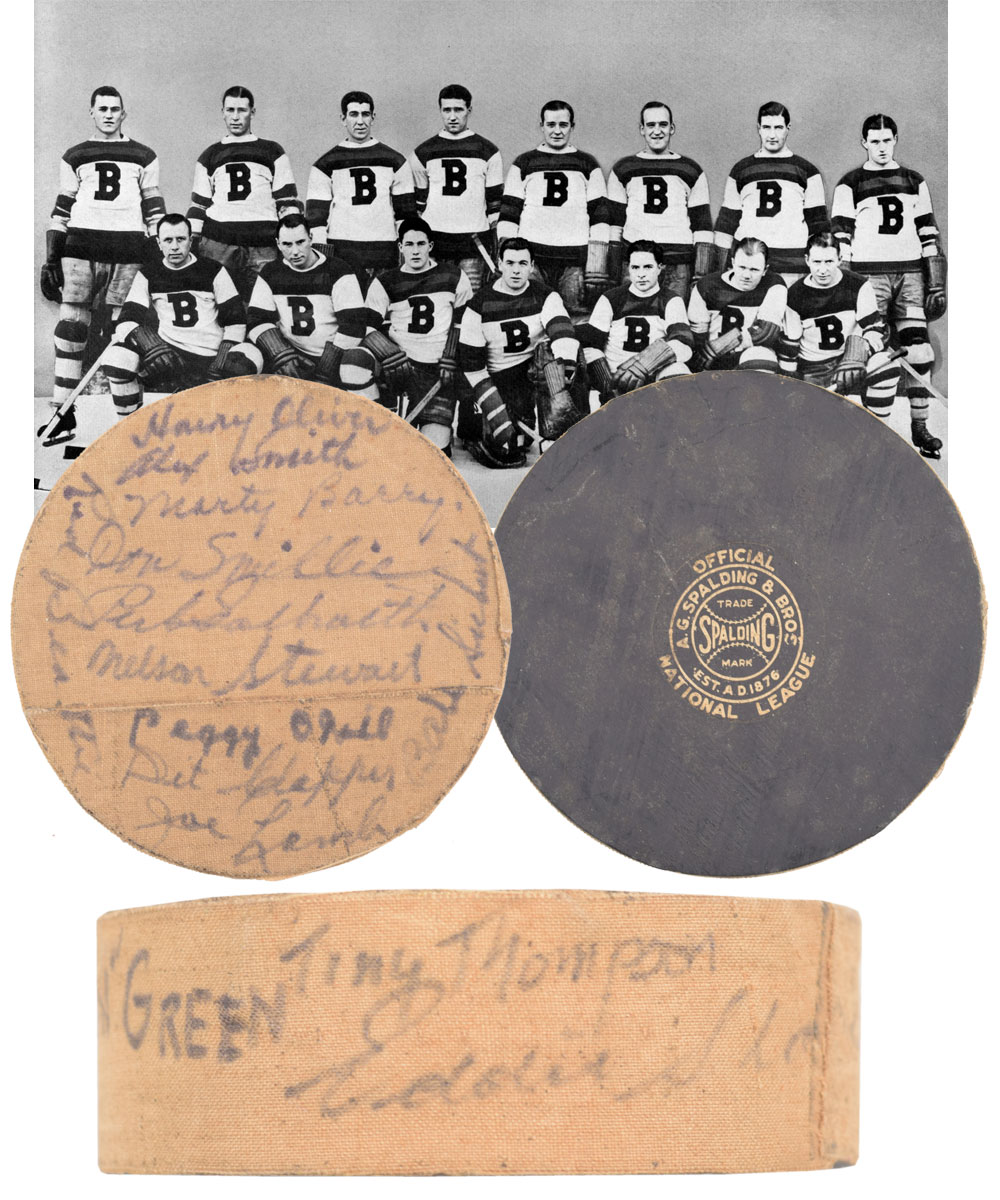 B B B B B B B B
B B B B B B B
Harry Oliver
Alex Smith
Marty Barry.
Don Smillie
Herb Galbraith
Nelson Stewart
Peggy O'Neil
Dit Clapper
Joe Lamb
OFFICIAL
A.G. SPALDING & BROS
TRADE
SPALDING
MARK
EST. A.D. 1876
NATIONAL LEAGUE
GREEN
Tiny Thompson
Eddie